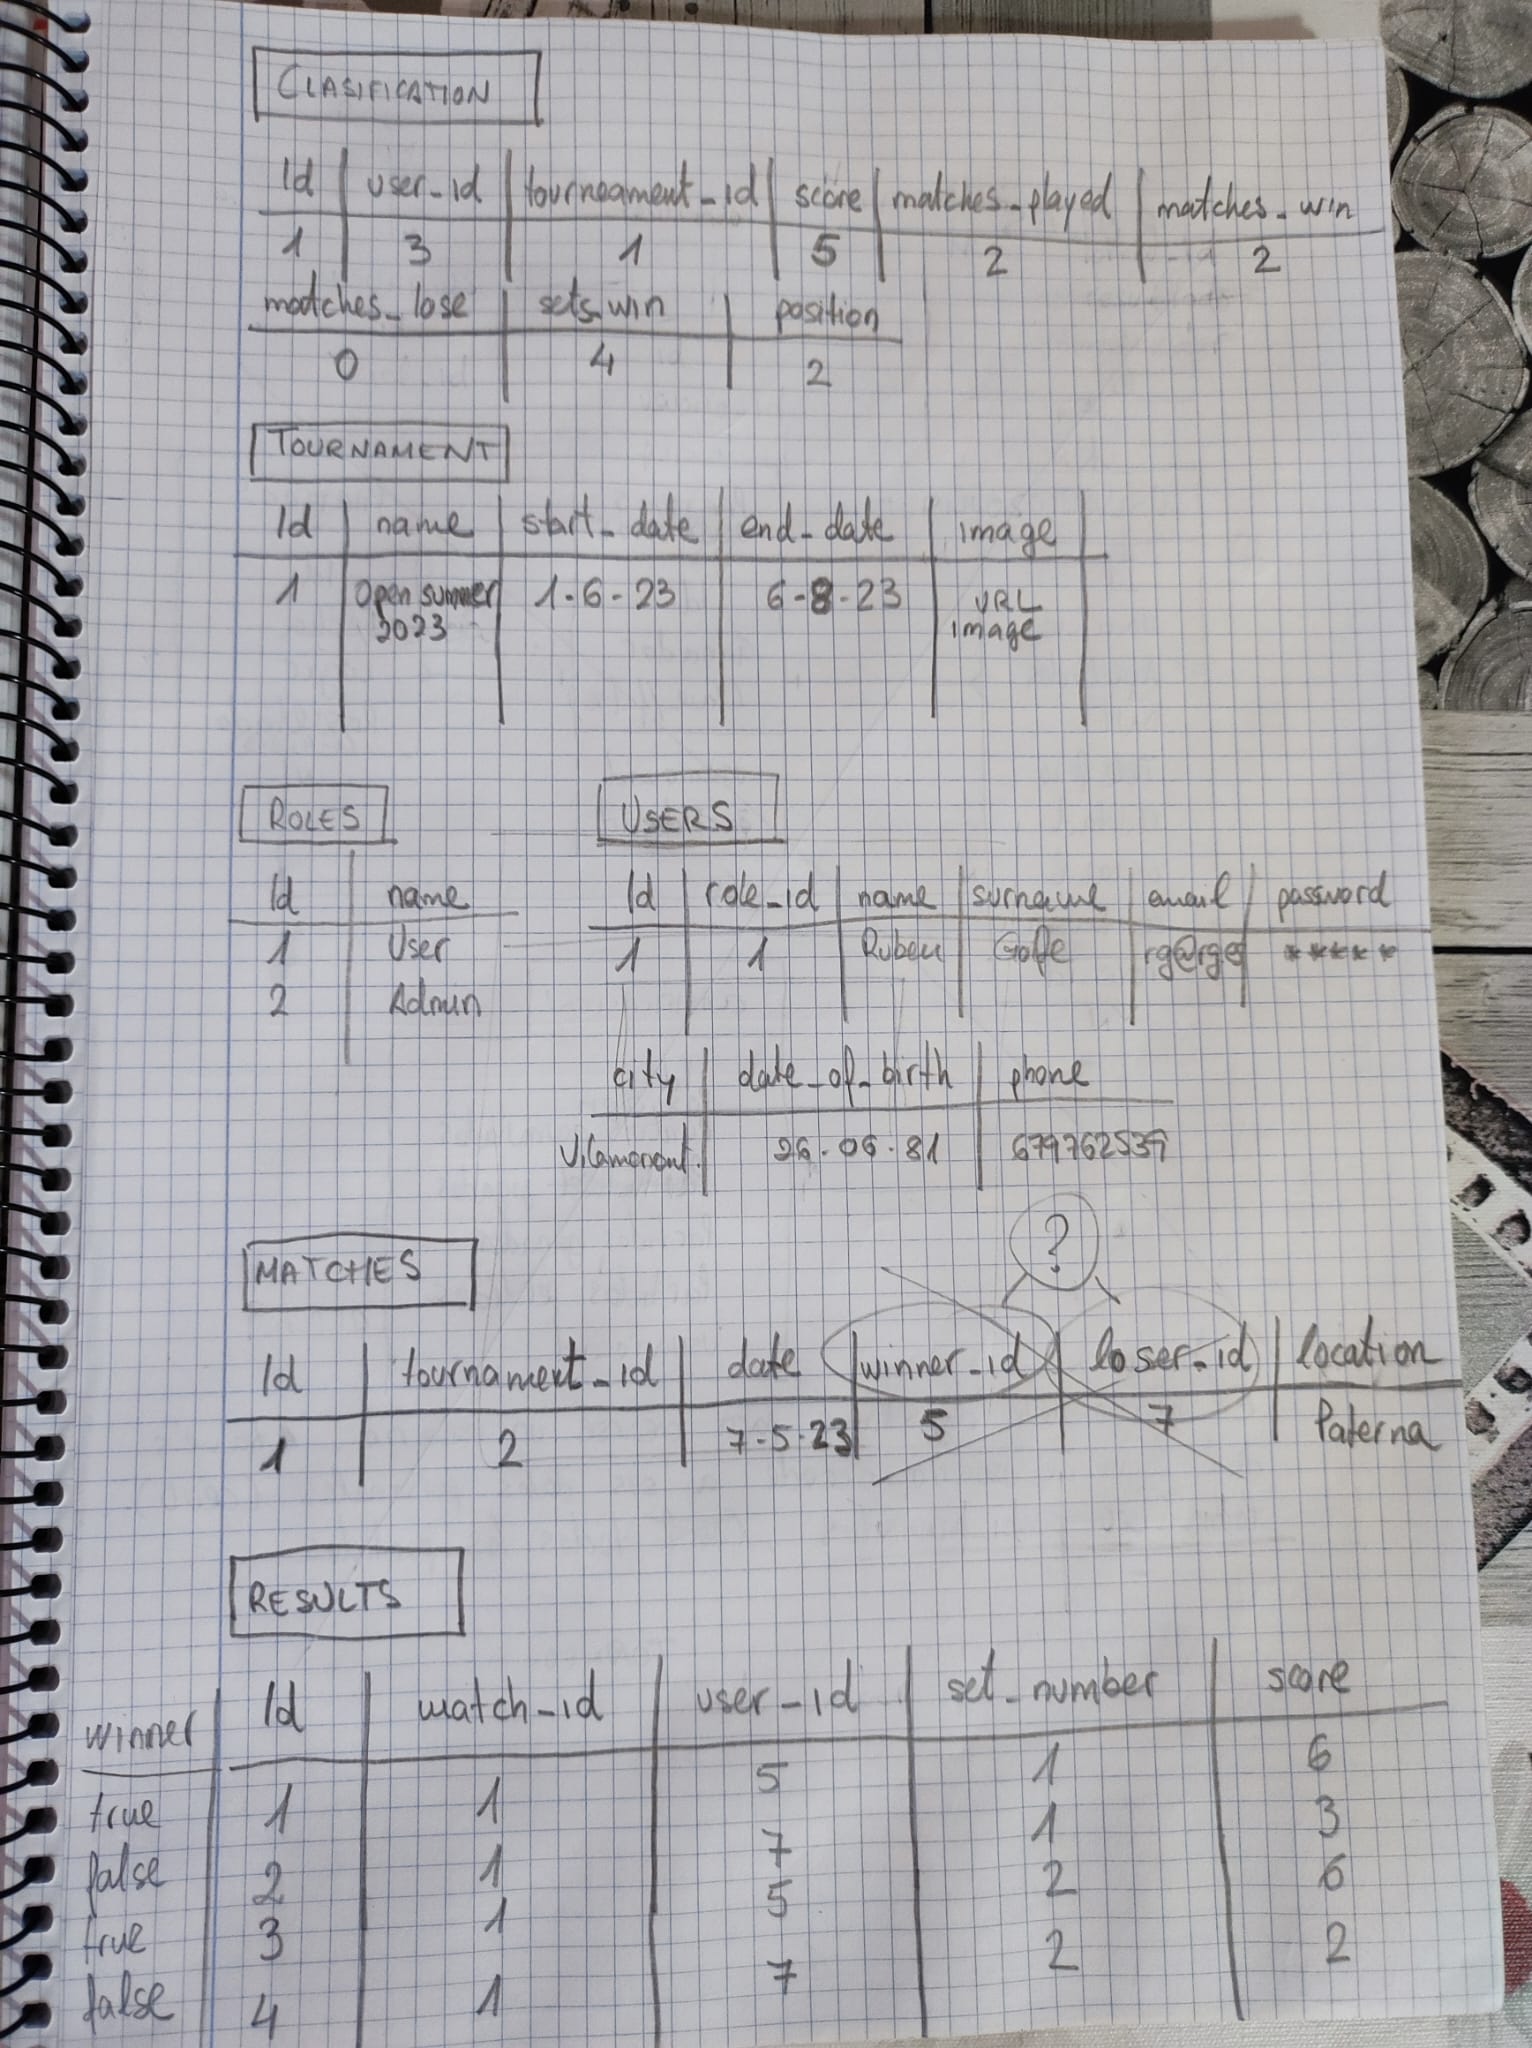 CLASIFICATION
Id user_id tourneament_id score matches_played matches_win
1 3 1 5 2 2
matches_lose sets_win position
0 4 2
TOURNAMENT
Id name start_date end_date image
1 Open summer 1-6-23 6-8-23 URL
2023 image
ROLES USERS
Id name Id role_id name surname email password
1 User 1 1 Ruben rg@rges *****
2 Admin
city date_of_birth phone
26-06-81 679762539
?
MATCHES
Id tournament_id date winner_id loser_id location
1 2 7-5-23 5 7 Paterna
RESULTS
winner Id match_id user_id set_number score
true 1 1 5 1 6
false 2 1 7 1 3
true 3 1 5 2 6
false 4 1 7 2 2